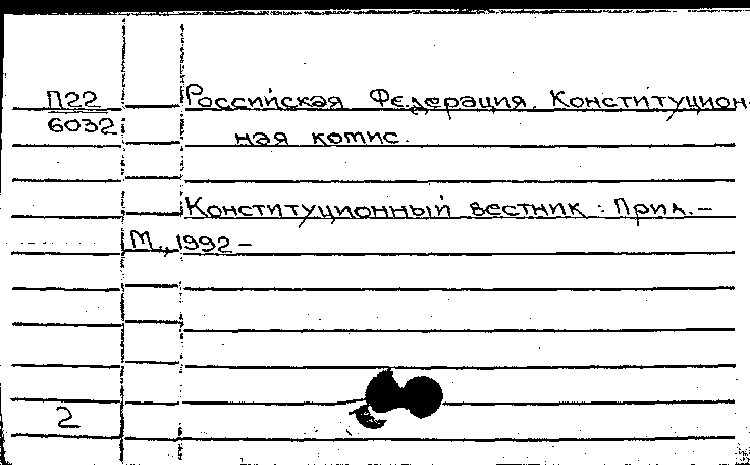 П22 Российская Федерация. Конституцион-
6032 ная комис.
Конституционный вестник : Прил. –
М., 1992 –
2